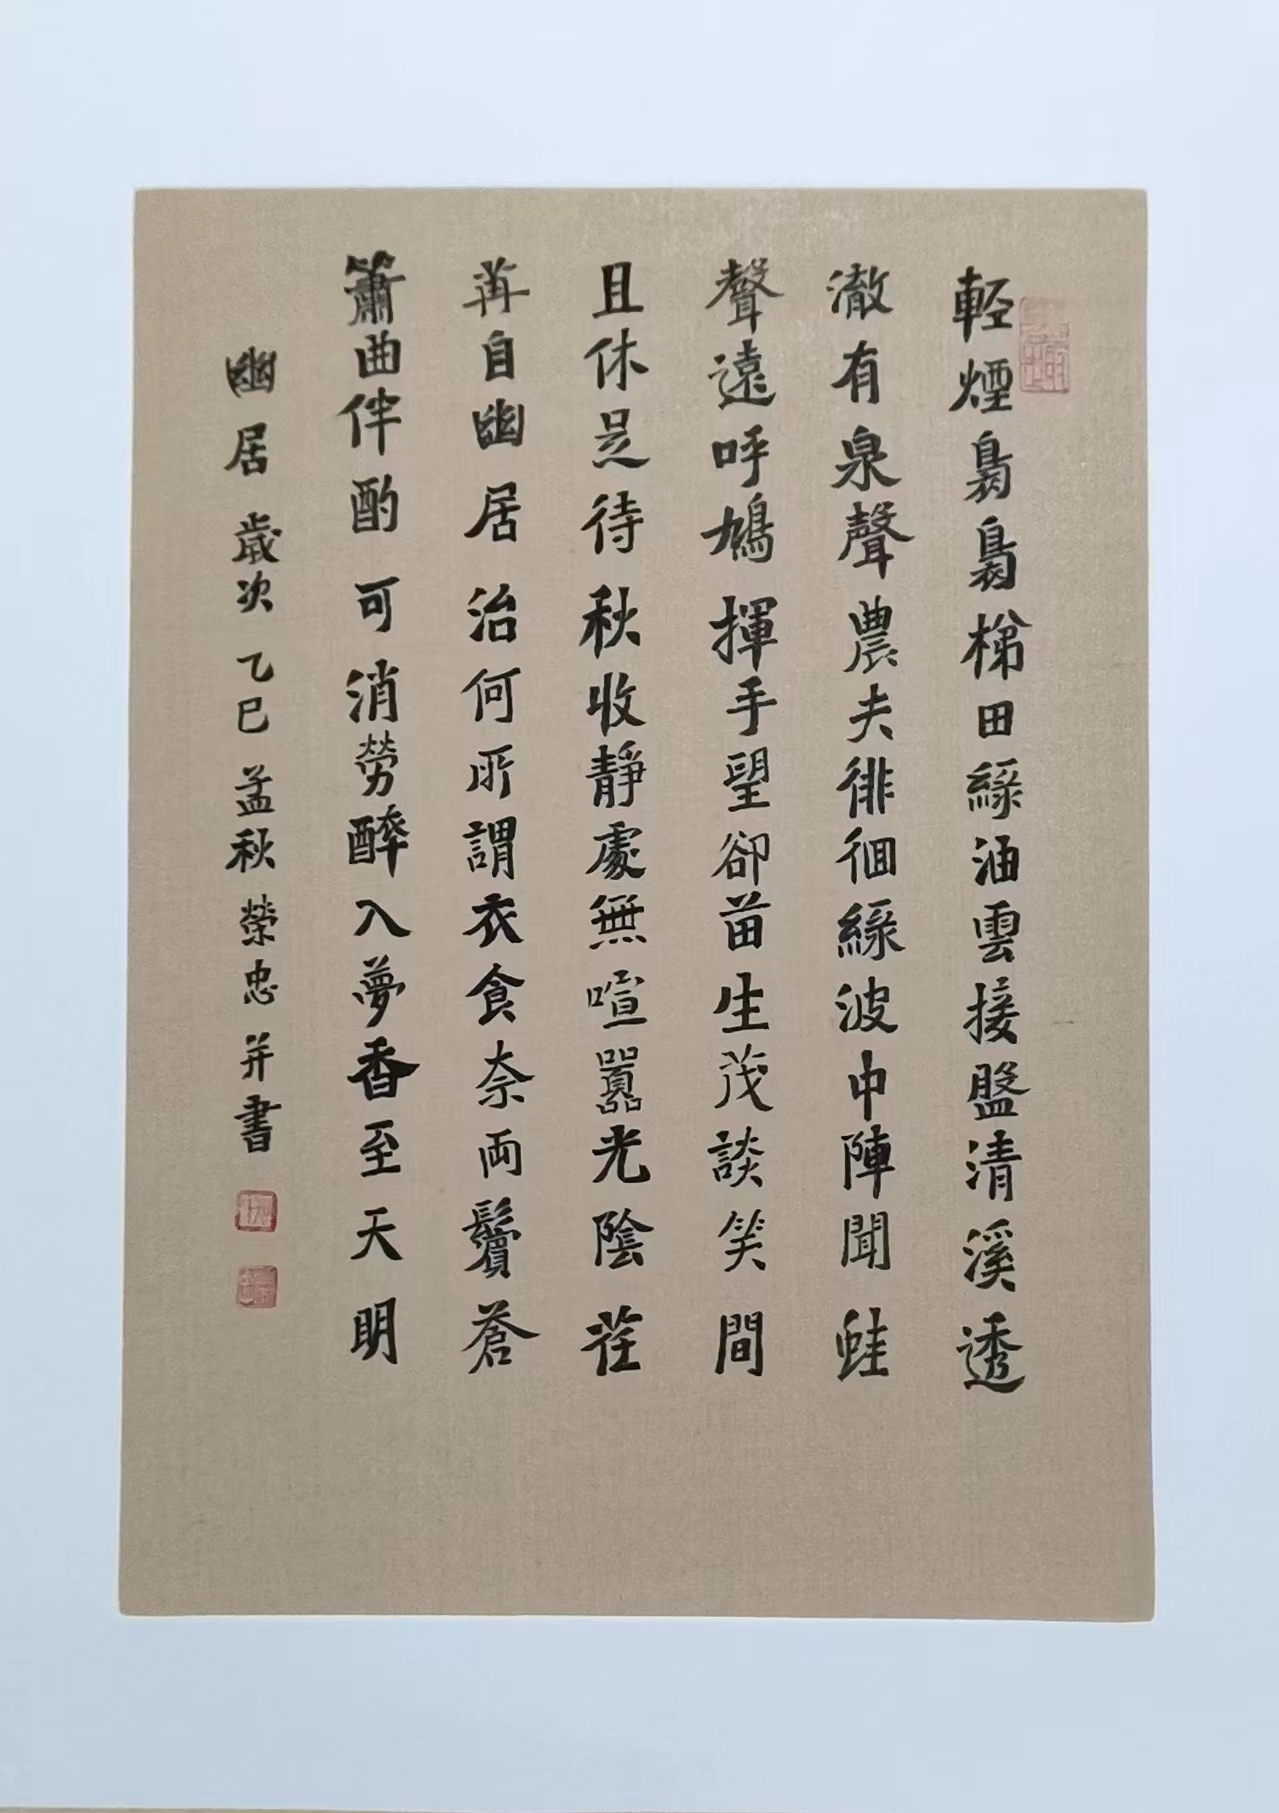 輕煙裊裊梯田緑油雲接盤清溪透
澈有泉聲農夫徘徊緑波中陣聞蛙
聲遠呼鳩揮手望卻苗生茂談笑間
且休足待秋收靜處無喧囂光陰荏
苒自幽居治何所謂衣食奈両鬢蒼
簫曲伴酌可消勞醉入夢香至天明
幽居歲次乙巳孟秋榮忠并書